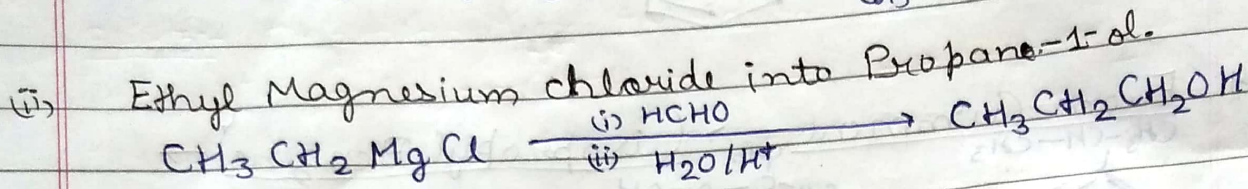 (ii) Ethyl Magnesium chloride into Propane-1-ol.
CH3 CH2 Mg Cl (i) HCHO (ii) H2O/H+ → CH3CH2CH2OH